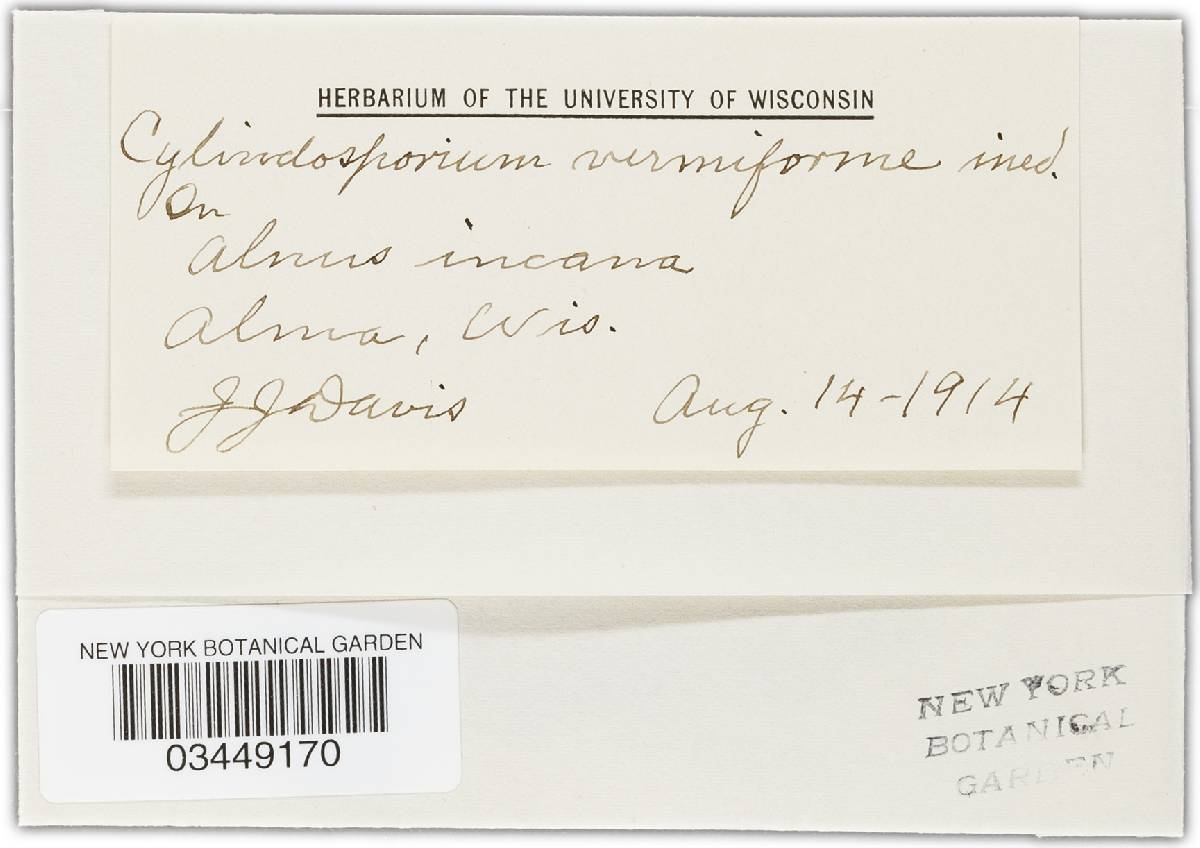 HERBARIUM OF THE UNIVERSITY OF WISCONSIN
Cylindosporium vermiforme ined.
On
Alnus incana
Alma, Wis.
J J Davis Aug. 14-1914
NEW YORK BOTANICAL GARDEN
03449170
NEW YORK
BOTANICAL
GARDEN